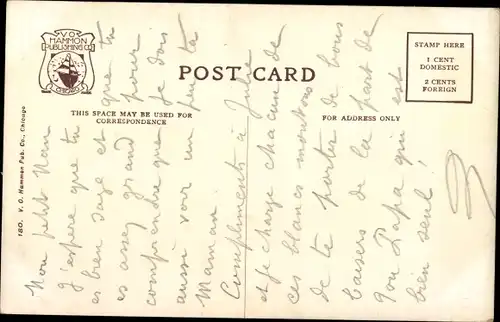 V.O. HAMMON PUBLISHING CO.
CHICAGO
POST CARD
THIS SPACE MAY BE USED FOR
CORRESPONDENCE
FOR ADDRESS ONLY
STAMP HERE
1 CENT
DOMESTIC
2 CENTS
FOREIGN
180. V. O. Hammon Pub. Co., Chicago
Mon petit
j'espère que tu
es bien sage et que tu
es assez grand pour
comprendre que je dois
aussi voir un peu ta
Maman
Compliments à Julie
et je charge chacun de
ces blancs moutons
de te porter de bons
baisers de la part de
ton Papa qui est
bien seul!